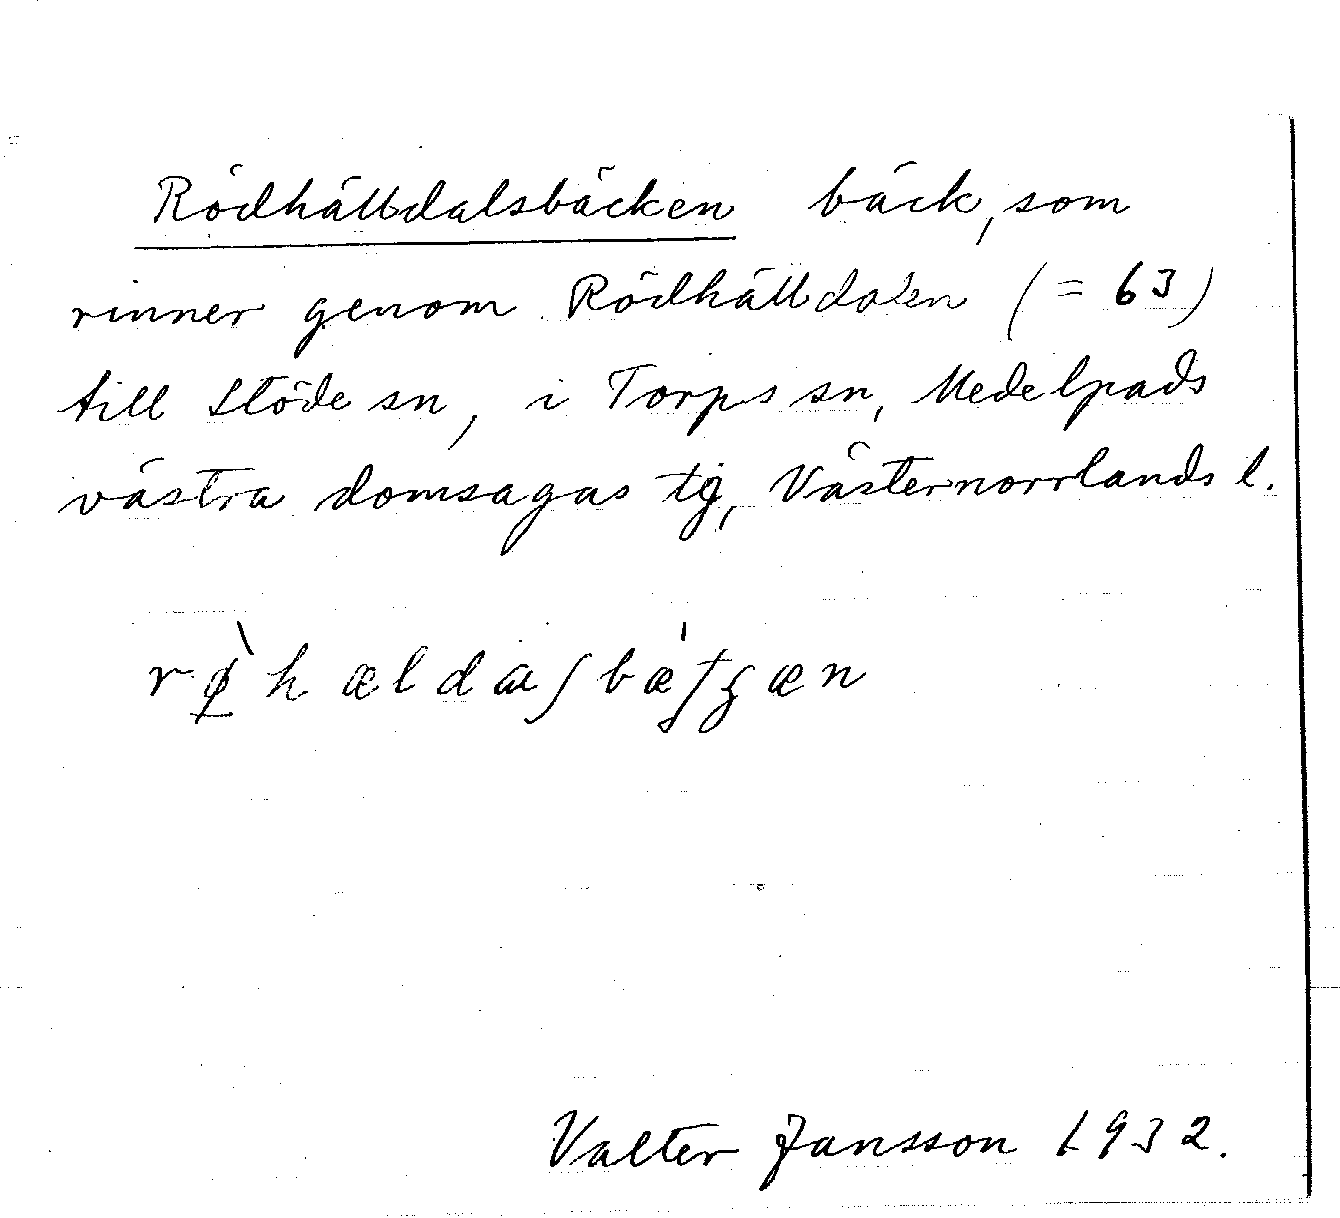 Rödhälldalsbäcken bäck, som
rinner genom Rödhälldalen (= 63)
till Stöde sn, i Torps sn, Medelpads
västra domsagas tg, Västernorrlands l.
Valter Jansson 1932.